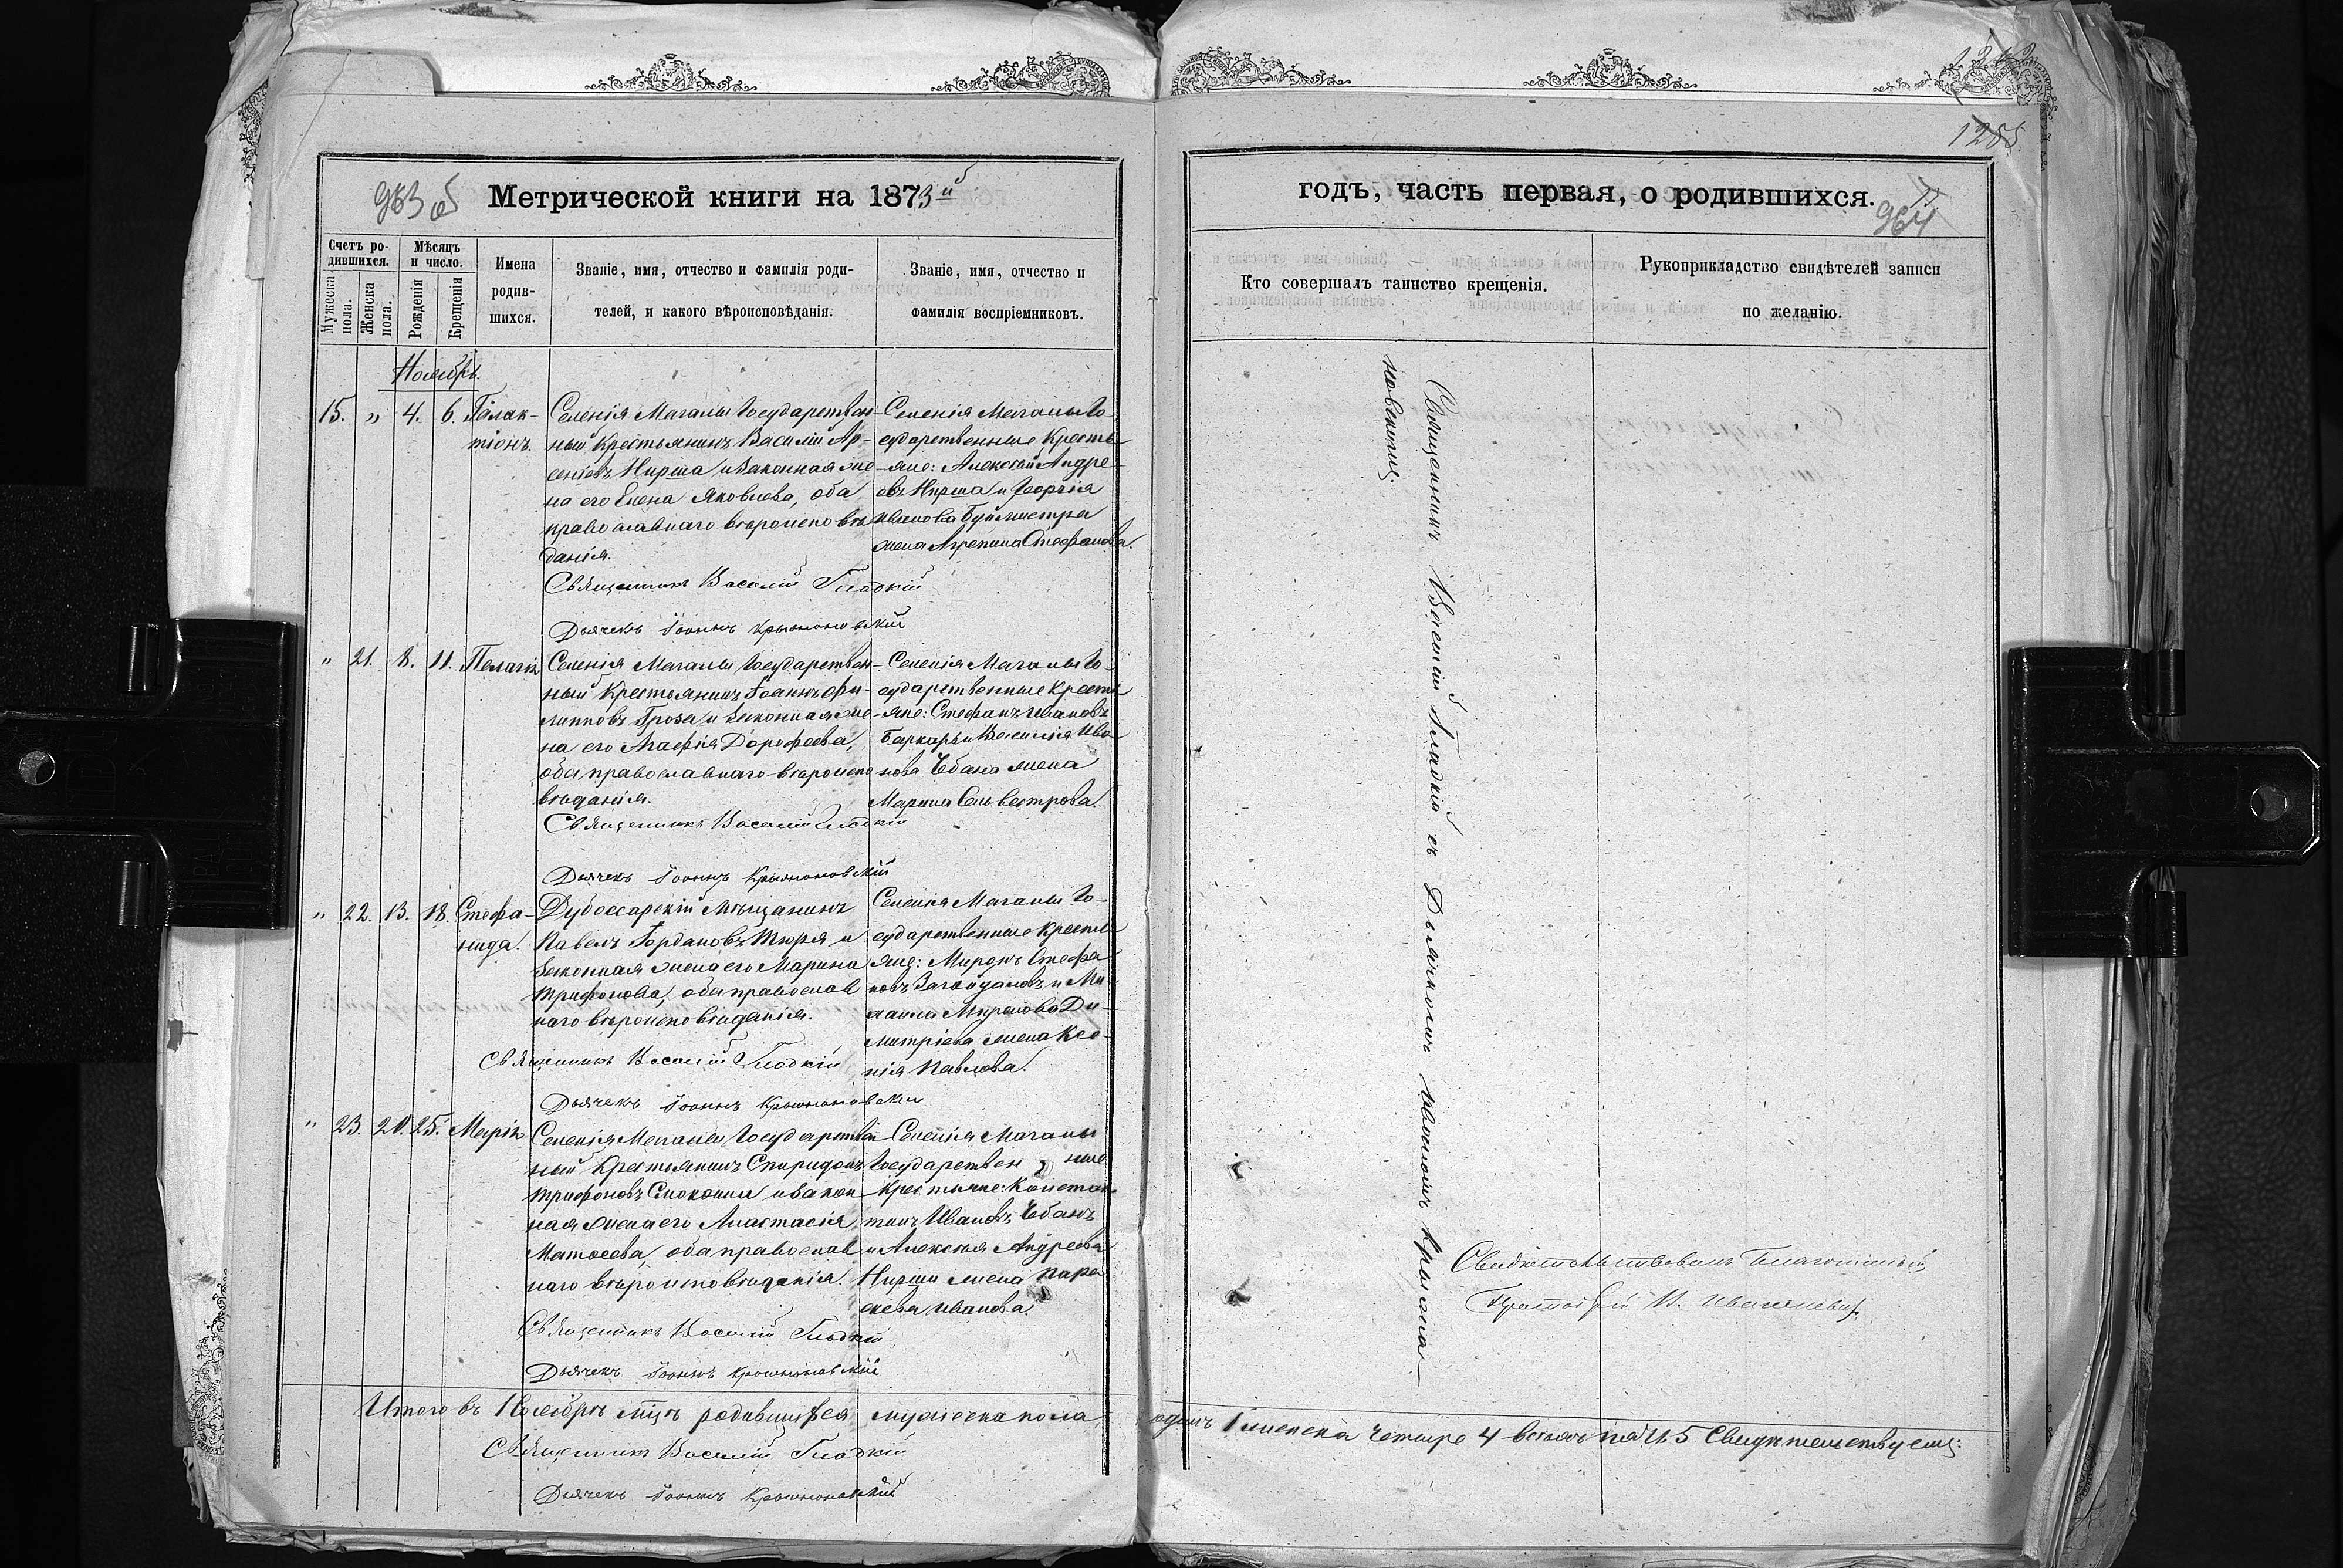 1242
1288
963 об
Метрической книги на 1873 й
годъ, часть первая, о родившихся.
964
Счетъ родившихся.
Мужеска пола.
Женска пола.
Мѣсяцъ и число.
Рожденія
Крещенія
Имена родившихся.
Званіе, имя, отчество и фамилія роди-
телей, и какого вѣроисповѣданія.
Званіе, имя, отчество и
фамилія воспріемниковъ.
Кто совершалъ таинство крещенія.
Рукоприкладство свидѣтелей записи
по желанію.
Ноябрь.
15. „ 4. 6. Галак-
тіонъ.
Селенія Магалы Государствен-
ный Крестьянинъ Василій Ар-
сеніевъ Нирша и законная же
на его Елена Яковлева, оба
православнаго вѣроисповѣ
данія.
Священникъ Василій Гладкій
Дьячекъ Іоаннъ Крыжановскій
Селенія Магалы Го-
сударственные Кресть
-яне: Алексѣй Андре-
евъ Нирша и Георгія
Иванова Буймистра
жена Агрепина Стефанова.
„ 21. 8. 11. Пелагія
Селенія Магалы Государствен-
ный Крестьянинъ Іоаннъ Фи-
липповъ Гроза и законная же
на его Агафія Дорофеева,
оба православнаго вѣроиспо
вѣданія.
Священникъ Василій Гладкій
Дьячекъ Іоаннъ Крыжановскій
Селенія Магалы Го-
сударственные Кресть
-яне: Стефанъ Ивановъ
Баркарь и Василія Ива
нова Чебана жена
Марина Сильвестрова.
„ 22. 13. 18. Стефа-
нида.
Дубоссарскій Мѣщанинъ
Павелъ Іордановъ Тюря и
законная жена его Марина
Трифонова, оба православ
наго вѣроисповѣданія.
Священникъ Василій Гладкій
Дьячекъ Іоаннъ Крыжановскій
Селенія Магалы Го-
сударственные Кресть
яне: Миронъ Стефа
новъ и Ми-
хаила Миронова Ди-
митріева жена Ксе-
нія Павлова.
„ 23. 20. 25. Марія
Селенія Магалы Государствен
ный Крестьянинъ Спиридонъ
Трифоновъ и закон
ная жена его Анастасія
Матѳеева, оба православ
наго вѣроисповѣданія.
Священникъ Василій Гладкій
Дьячекъ Іоаннъ Крыжановскій
Селенія Магалы
Государствен ные
Крестьяне: Констан
тинъ Ивановъ Чебанъ
и Алексѣя Андреева
Нирши жена Пара
скева Иванова.
Священникъ Василій Гладкій съ Дьячкомъ Иваномъ Крыжа-
новскимъ.
Свидѣтельствовалъ Благочинный
Протоіерей
Итого въ Ноябрѣ мцѣ родившихся мужеска пола одинъ 1 женска четыре 4 всѣхъ пять 5 Свидѣтельствуемъ:
Священникъ Василій Гладкій
Дьячекъ Іоаннъ Крыжановскій